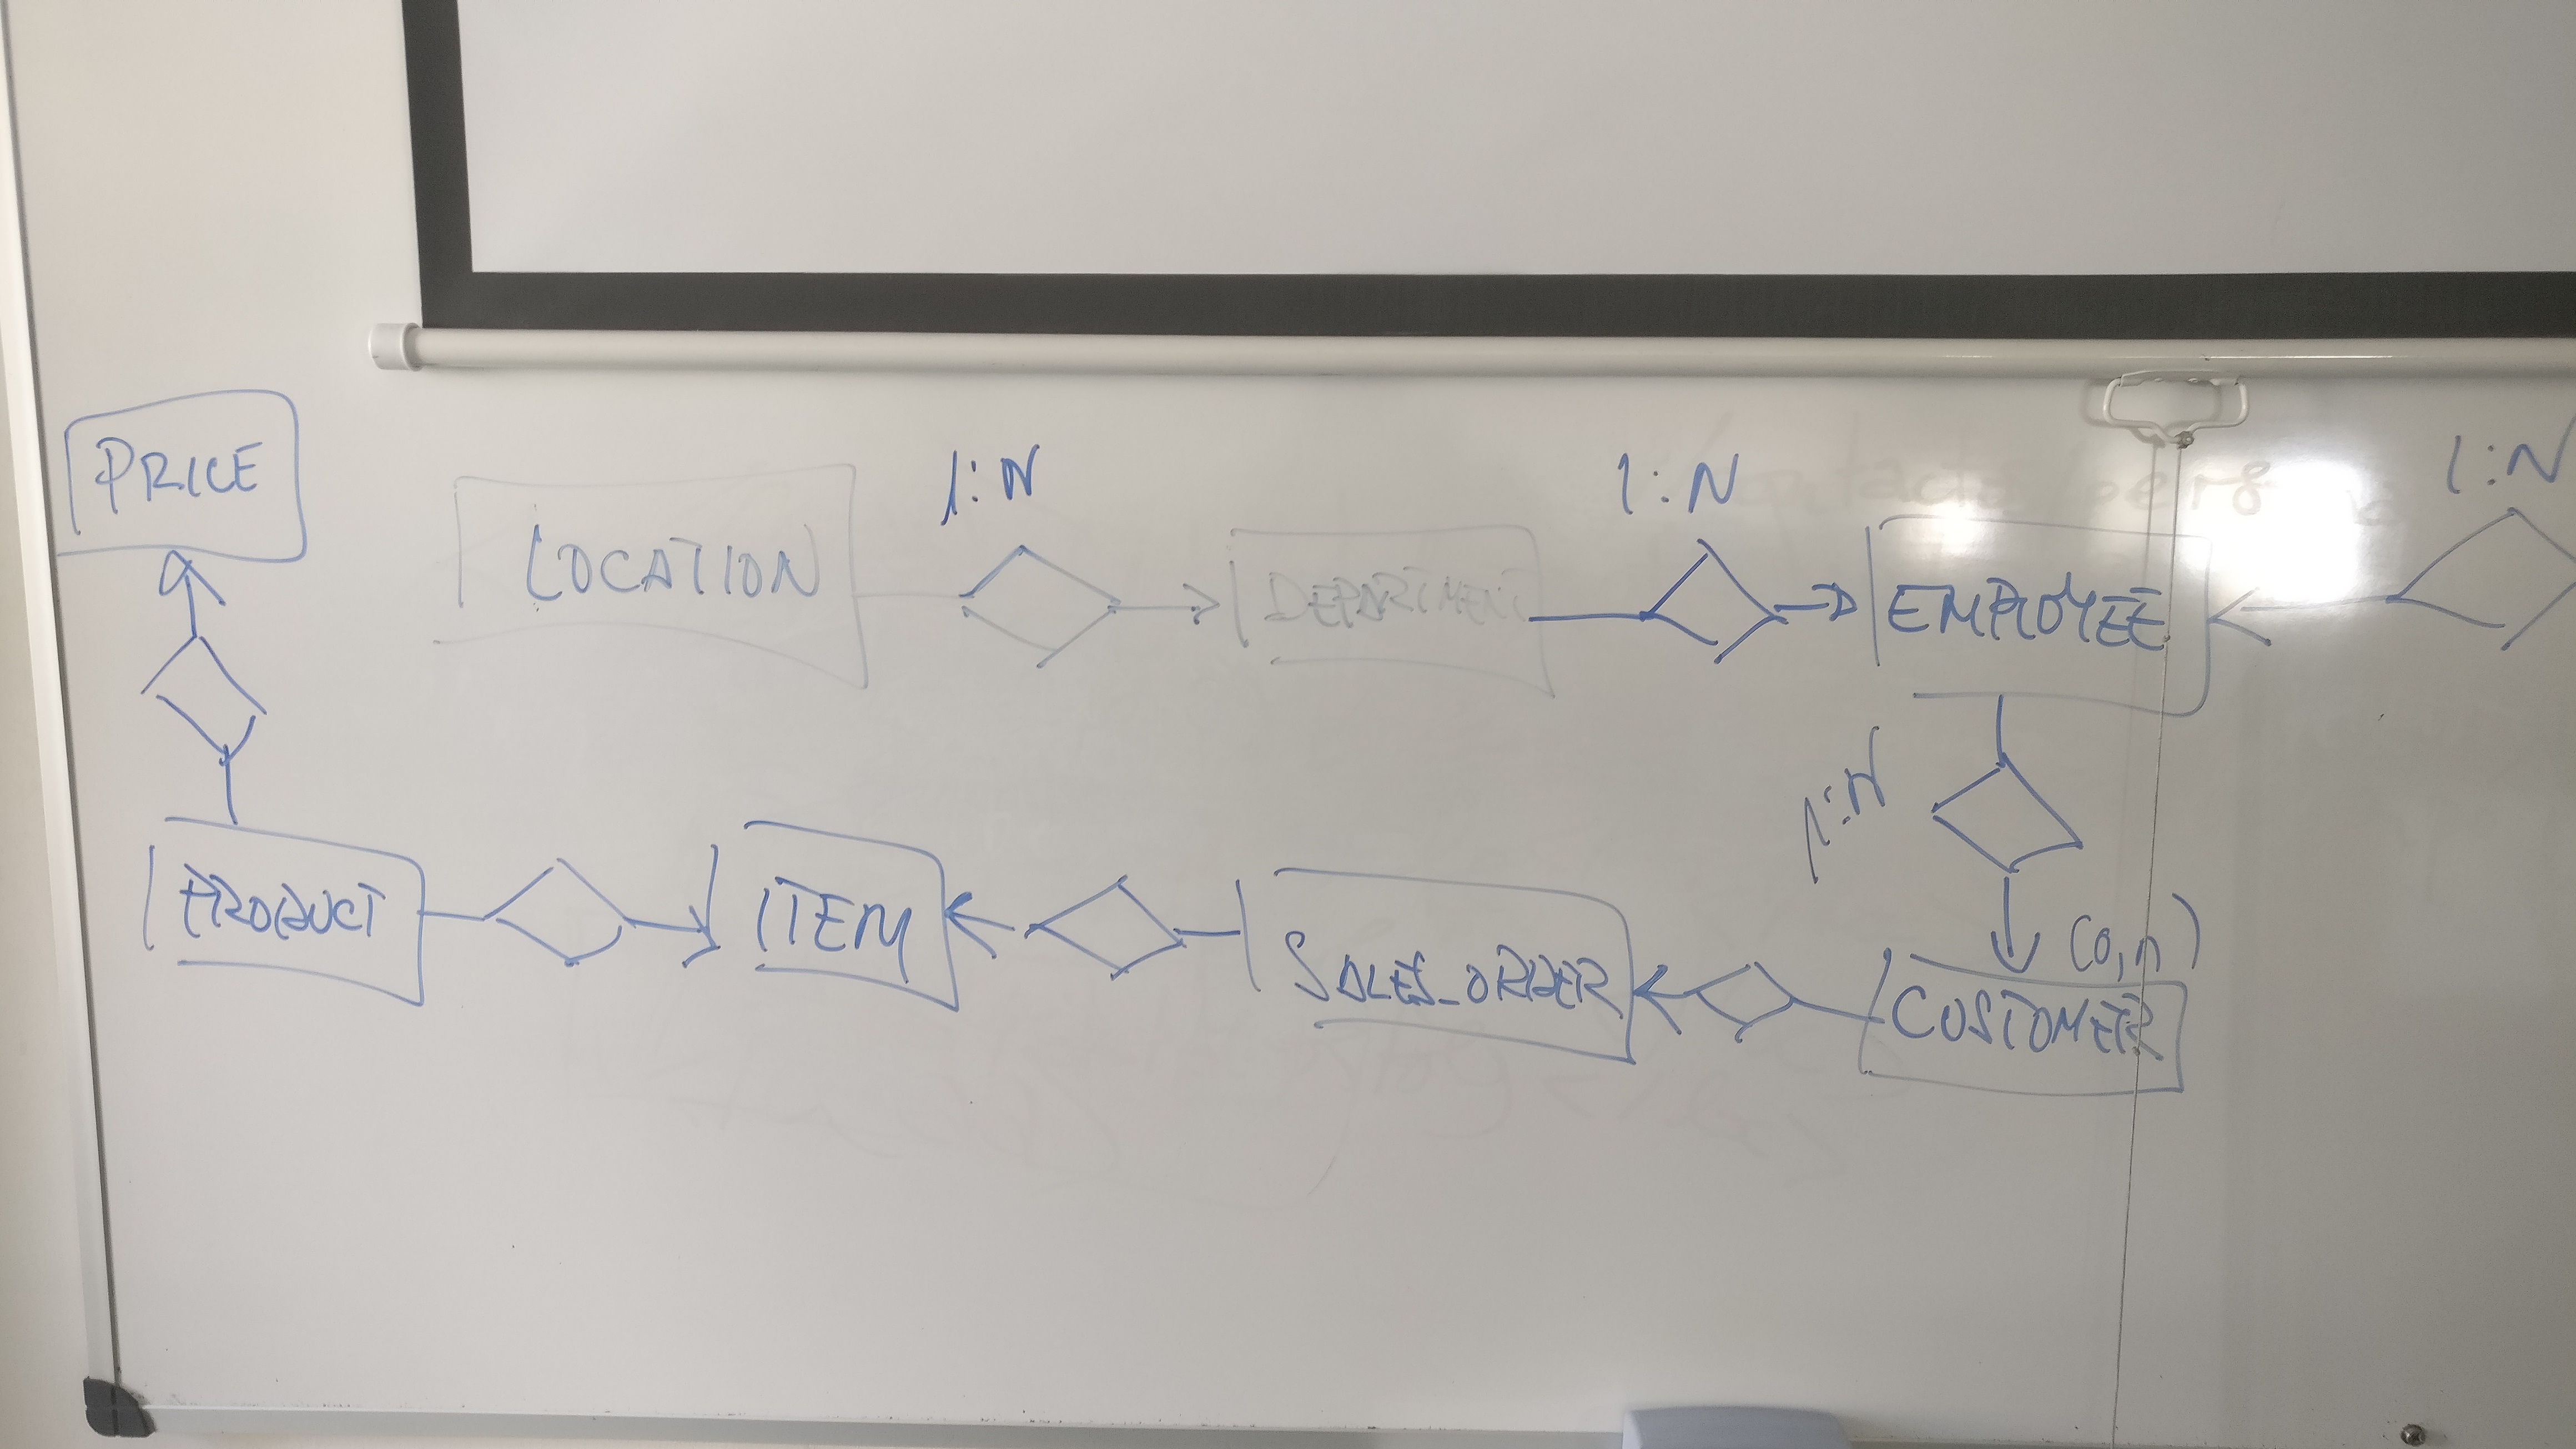 PRICE
LOCATION
1:N
DEPARTMENT
1:N
EMPLOYEE
1:N
1:N
(0,n)
PRODUCT
ITEM
SALES_ORDER
CUSTOMER